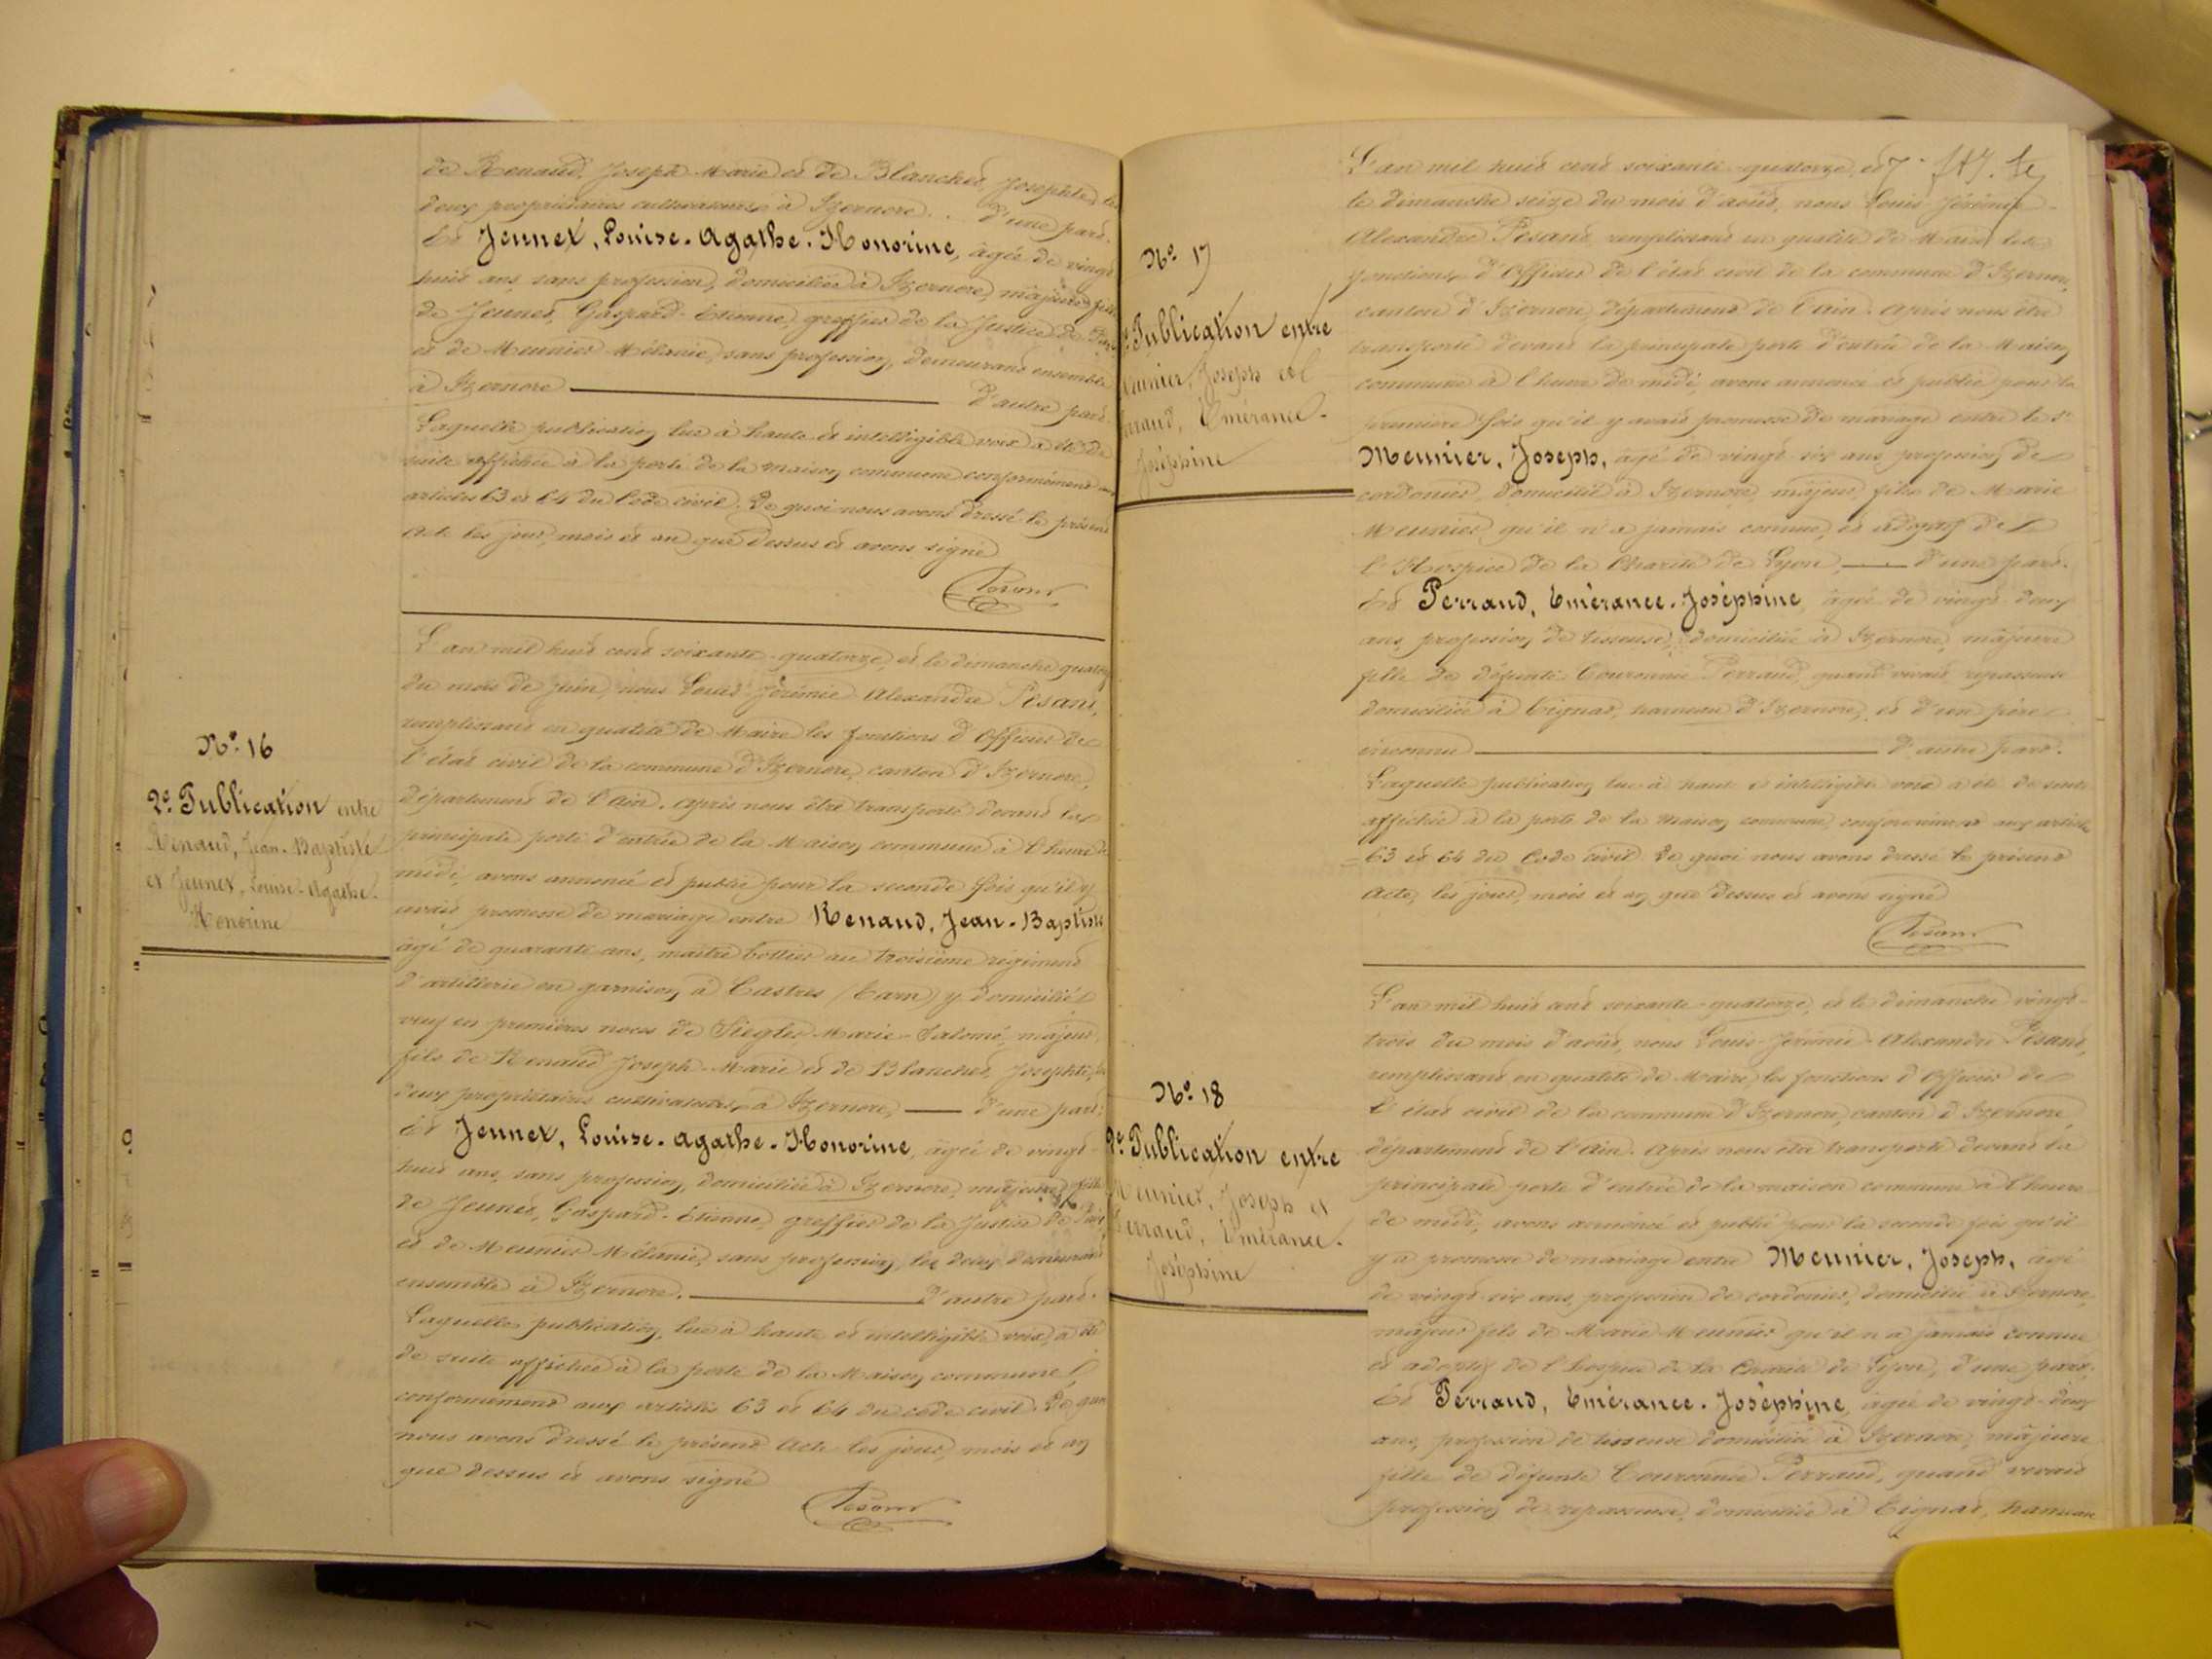 de Renaud, Joseph Marie et de Blanchet, Josephte, les
deux propriétaires cultivateurs à Izernore. . d'une part.
Et Jeunet, Louise-Agathe-Honorine, âgée de vingt
huit ans, sans profession, domiciliée à Izernore, majeure fille
de Jeunet, Gaspard-Etienne, greffier de la Justice de Paix
et de Meunier Mélanie, sans profession, demeurant ensemble
à Izernore d'autre part.
Laquelle publication lue à haute et intelligible voix a été de
suite affichée à la porte de la maison commune conformément aux
articles 63 et 64 du Code civil. De quoi nous avons dressé le présent
Acte les jour, mois et an que dessus et avons signé
Pesant
N° 16
2e Publication entre
Renaud, Jean-Baptiste
et Jeunet, Louise-Agathe-
Honorine
L'an mil huit cent soixante-quatorze, et le dimanche quatorze
du mois de juin, nous Louis-Jérémie-Alexandre Pesant,
remplissant en qualité de Maire les fonctions d'Officier de
l'état civil de la commune d'Izernore, canton d'Izernore,
département de l'Ain. Après nous être transporté devant la
principale porte d'entrée de la Maison commune à l'heure de
midi, avons annoncé et publié pour la seconde fois qu'il y
avait promesse de mariage entre Renaud, Jean-Baptiste
âgé de quarante ans, maître bottier au troisième régiment
d'artillerie en garnison à Castres (Tarn) y domicilié
veuf en premières noces de Siegler Marie-Salomé, majeur,
fils de Renaud Joseph-Marie et de Blanchet, Josephte, les
deux propriétaires cultivateurs à Izernore, d'une part.
Et Jeunet, Louise-Agathe-Honorine, âgée de vingt
huit ans, sans profession, domiciliée à Izernore, majeure fille
de Jeunet, Gaspard-Etienne, greffier de la Justice de Paix,
et de Meunier Mélanie, sans profession, les deux demeurant
ensemble à Izernore. d'autre part.
Laquelle publication, lue à haute et intelligible voix, a été
de suite affichée à la porte de la Maison commune
conformément aux articles 63 et 64 du code civil. De quoi
nous avons dressé le présent Acte les jour, mois et an
que dessus et avons signé
Pesant
N° 17
Publication entre
Meunier, Joseph et
Perraud, Emérance-
Joséphine
L'an mil huit cent soixante-quatorze, et
le dimanche seize du mois d'août, nous Louis Jérémie-
Alexandre Pesant, remplissant en qualité de Maire les
fonctions d'Officier de l'état civil de la commune d'Izernore,
canton d'Izernore, département de l'Ain. Après nous être
transporté devant la principale porte d'entrée de la Maison
commune à l'heure de midi, avons annoncé et publié pour la
première fois qu'il y avait promesse de mariage entre le sr
Meunier, Joseph, âgé de vingt-six ans profession de
cordonier, domicilié à Izernore, majeur, fils de Marie
Meunier qu'il n'a jamais connue, et adoptif de
l'Hospice de la Charité de Lyon, d'une part.
Et Perraud, Emérance-Joséphine âgée de vingt-deux
ans, profession de tisseuse, domiciliée à Izernore, majeure
fille de défunte Couronnée Perraud, quand vivait repasseuse
domiciliée à Tignat, hameau d'Izernore, et d'un père
inconnu d'autre part.
Laquelle publication lue à haute et intelligible voix a été de suite
affichée à la porte de la Maison commune, conformément aux articles
63 et 64 du Code civil De quoi nous avons dressé le présent
Acte, les jour, mois et an que dessus et avons signé
Pesant
N° 18
2e Publication entre
Meunier, Joseph et
Perraud, Emérance-
Joséphine
L'an mil huit cent soixante-quatorze, et le dimanche vingt-
trois du mois d'août, nous Louis-Jérémie-Alexandre Pesant,
remplissant en qualité de Maire, les fonctions d'Officier de
l'état civil de la commune d'Izernore, canton d'Izernore,
département de l'Ain. Après nous être transporté devant la
principale porte d'entrée de la maison commune à l'heure
de midi, avons annoncé et publié pour la seconde fois qu'il
y a promesse de mariage entre Meunier, Joseph, âgé
de vingt-six ans, profession de cordonier, domicilié à Izernore,
majeur fils de Marie Meunier qu'il n'a jamais connue
et adoptif de l'hospice de la Charité de Lyon, d'une part,
Et Perraud, Emérance-Joséphine âgée de vingt-deux
ans, profession de tisseuse domiciliée à Izernore, majeure
fille de défunte Couronnée Perraud, quand vivait
profession de repasseuse, domiciliée à Tignat, hameau